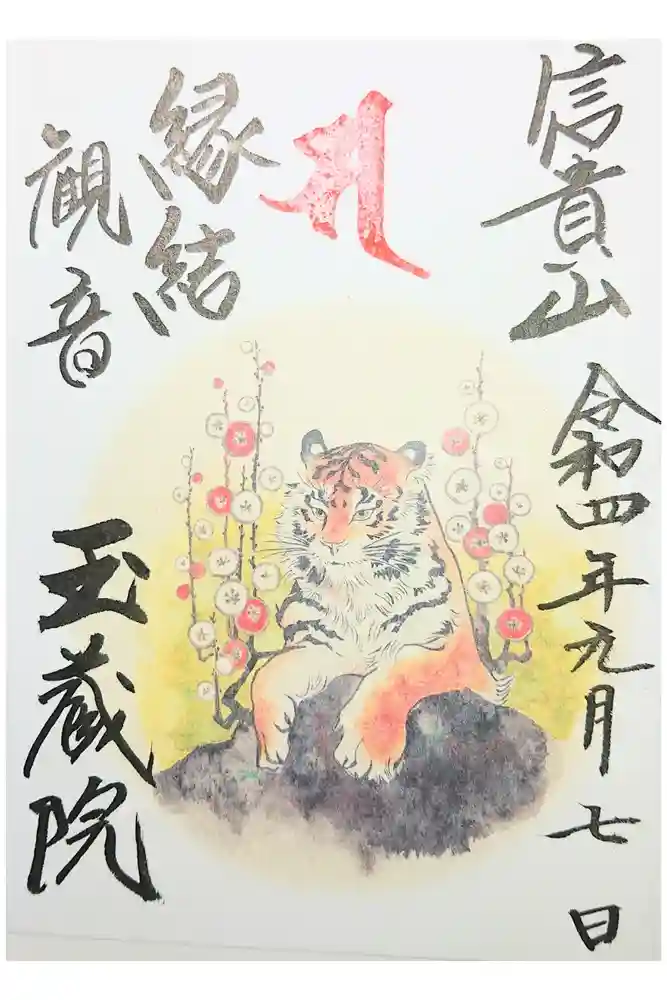 信貴山
令和四年元月七日
縁結
観音
玉蔵院